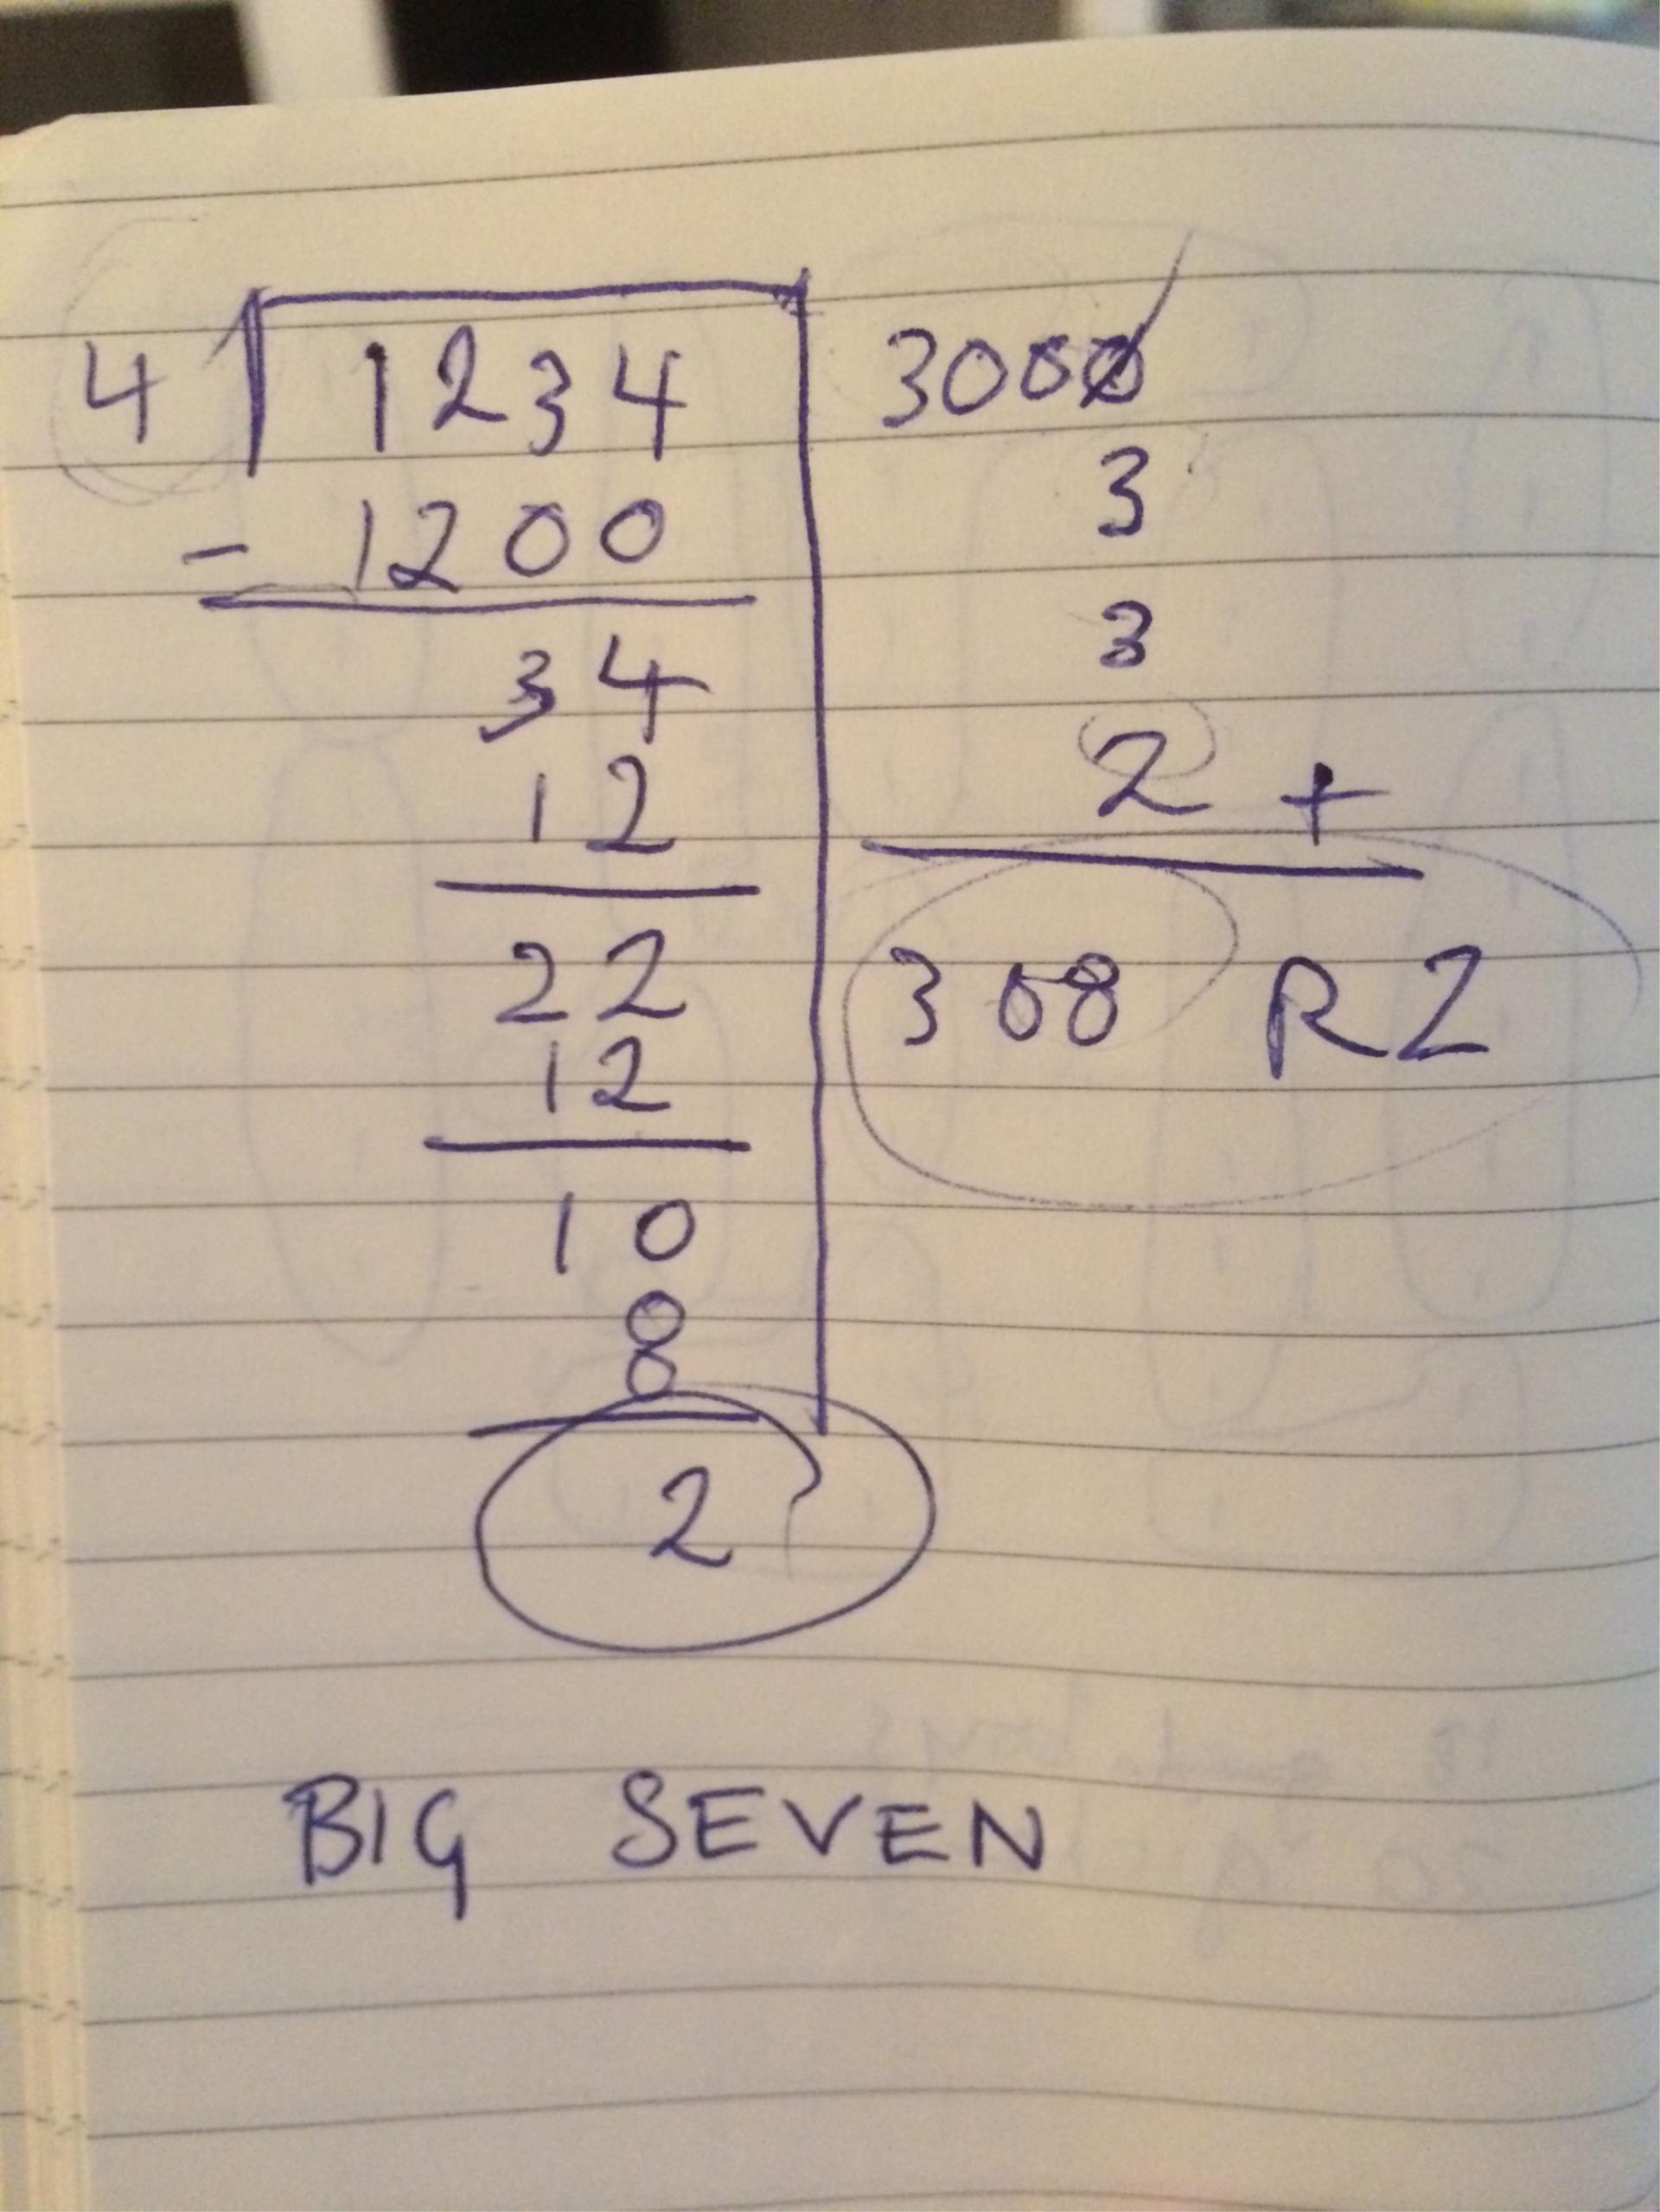 4 1234 3000
- 1200 3
34 3
12 2 +
22 308 R2
12
10
8
2
BIG SEVEN